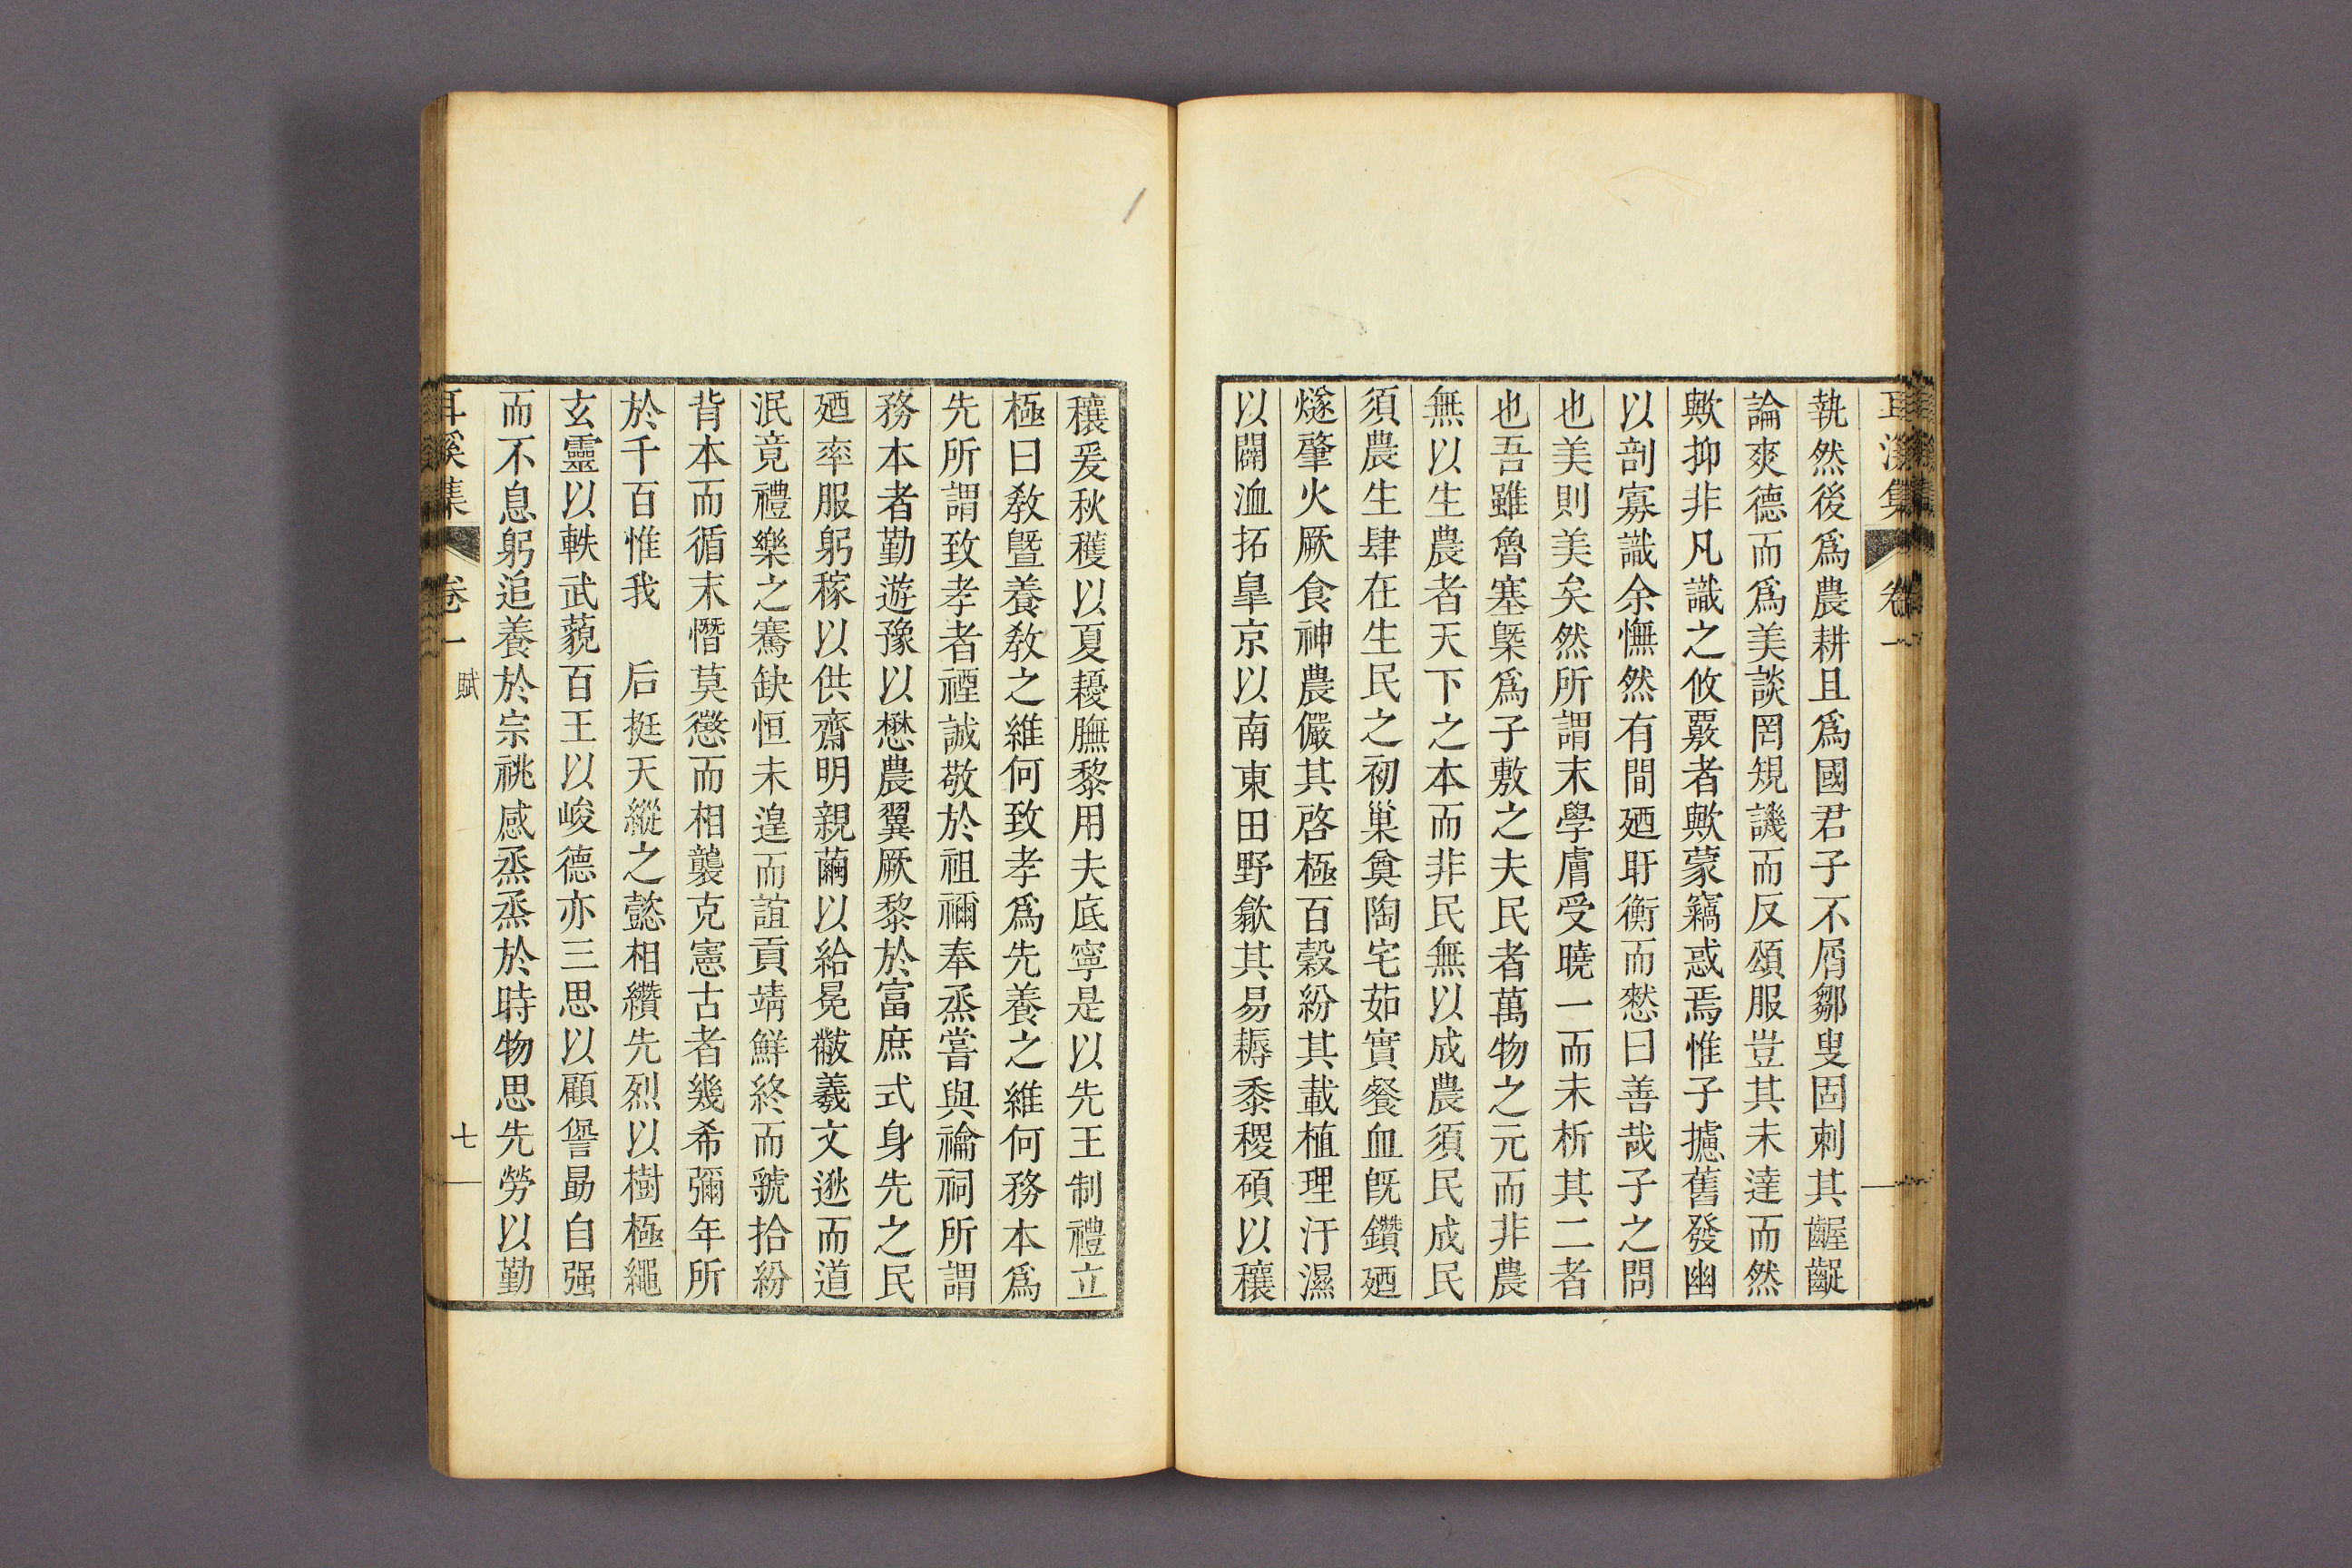 耳溪集 卷一
執然後爲農耕且爲國君子不屑鄒叟固刺其齷齪
論爽德而爲美談罔規譏而反頌服豈其未達而然
歟抑非凡識之攸覈者歟蒙竊惑焉惟子攄舊發幽
以剖寡識余憮然有間廼盱衡而愁曰善哉子之問
也美則美矣然所謂末學膚受曉一而未析其二者
也吾雖魯塞槩爲子敷之夫民者萬物之元而非農
無以生農者天下之本而非民無以成農須民成民
須農生肆在生民之初巢奠陶宅茹實餐血旣鑽廼
燧肇火厥食神農儼其啓極百穀紛其載植理汙濕
以闢洫拓皐京以南東田野歙其易耨黍稷碩以穰
穰爰秋穫以夏耰膴黎用夫底寧是以先王制禮立
極曰敎曁養敎之維何致孝爲先養之維何務本爲
先所謂致孝者禋誠敬於祖禰奉烝嘗與禴祠所謂
務本者勤遊豫以懋農翼厥黎於富庶式身先之民
廼率服躬稼以供齋明親繭以給冕黻羲文逖而道
泯竟禮樂之騫缺恒未遑而誼貢靖鮮終而虢拾紛
背本而循末憯莫懲而相襲克憲古者幾希彌年所
於千百惟我 后挺天縱之懿相纘先烈以樹極繩
玄靈以軼武藐百王以峻德亦三思以顧諐勗自强
而不息躬追養於宗祧感烝烝於時物思先勞以勤
耳溪集 卷一 賦 七